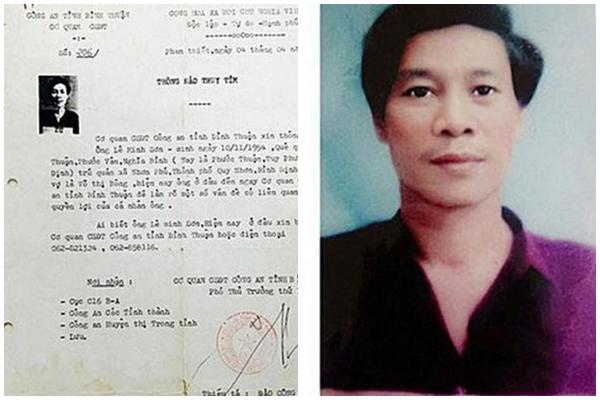 CÔNG AN TỈNH BÌNH THUẬN
CƠ QUAN CSĐT
-:-
Số: 206/
CỘNG HÒA XÃ HỘI CHỦ NGHĨA VIỆ
Độc lập - Tự do -Hạnh phú
------oo0oo------
Phan thiết,ngày 04 tháng 04 n
THÔNG BÁO TRUY TÌM
-----
Cơ quan CSĐT Công an tỉnh Bình Thuận xin thôn
Ông Lê Minh Sơn - sinh ngày 10/11/1954 ,Quê q
Thuận,Phước Vân,Nghĩa Bình ( Nay là Phước Thuận,Tuy Phư
Định) trú quán xã Nhơn Phú,Thành phố Quy Nhơn,Bình Định
vợ là Võ Thị Bông ,hiện nay ông ở đâu đến ngay Cơ quan
an tỉnh Bình Thuận để làm rõ một số vấn đề có liên quan
quyền lợi của cá nhân ông .
Ai biết ông Lê minh Sơn,Hiện nay ở đâu xin b
Cơ quan CSĐT Công an tỉnh Bình Thuận hoặc điện thoại
062-821324 , 062-858116.
Nơi nhận :
- Cục C16 B-A
- Công An Các Tỉnh thành
- Công an Huyện thị Trong tỉnh
- Lưu.
CƠ QUAN CSĐT CÔNG AN TỈNH B
Phó Thủ Trưởng thứ
Thiếu tá : ĐÀO CÔNG